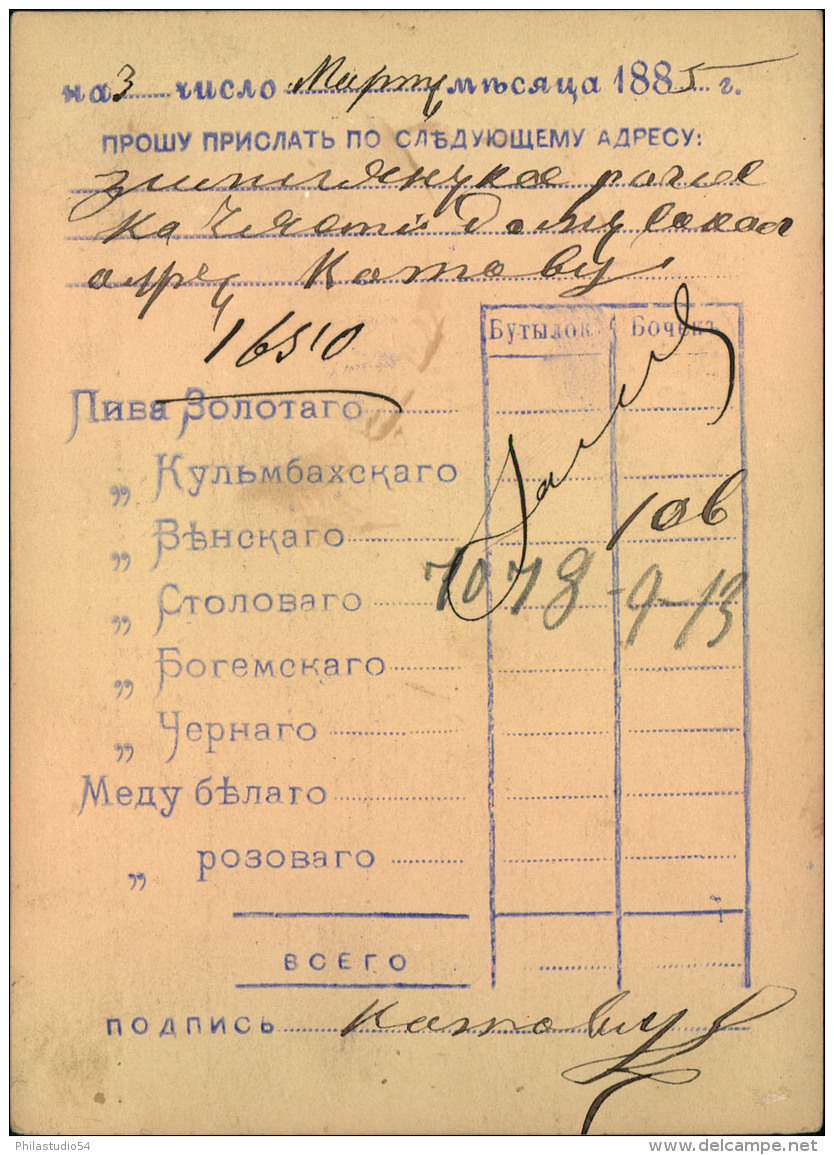 на 3 число Марту мѣсяца 1885 г.
ПРОШУ ПРИСЛАТЬ ПО СЛѢДУЮЩЕМУ АДРЕСУ:
Котову
1650
Бутылок Бочекъ
Пива Золотаго
„ Кульмбахскаго
„ Вѣнскаго 10в
„ Столоваго 7078-9-13
„ Богемскаго
„ Чернаго
Меду бѣлаго
„ розоваго
ВСЕГО
ПОДПИСЬ Котову
Philastudio54
www.delcampe.net